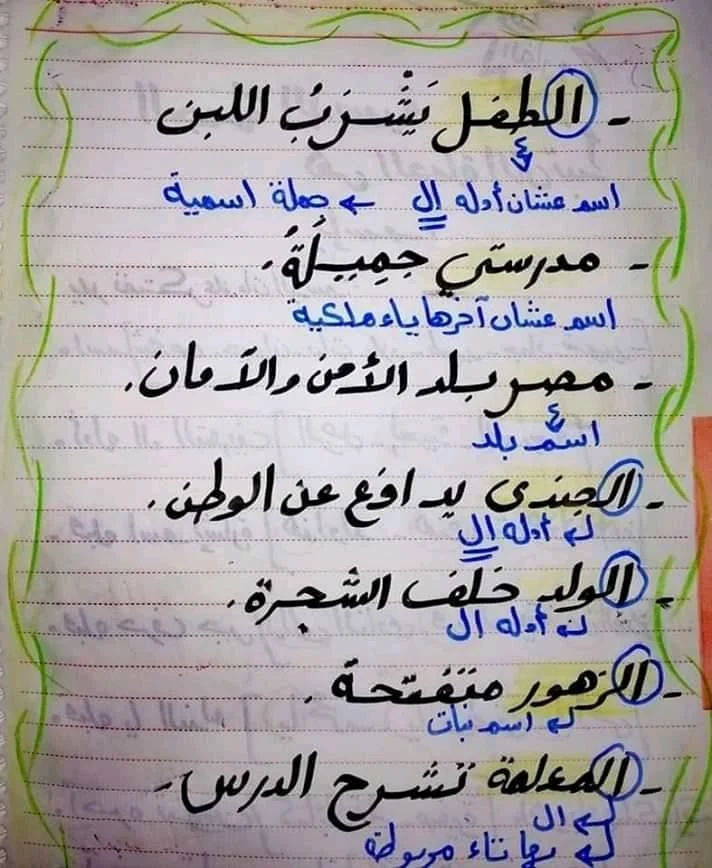 - الطفل يَشْرَبُ اللبن
اسم عشان أوله ال ← جملة اسمية
- مدرستي جَمِيلَةُ.
اسم عشان آخرها ياء ملكية
- مصر بلد الأمن والآمان.
اسم بلد
- الجندى يدافع عن الوطن.
أوله ال
- الولد خلف الشجرة.
أوله ال
- الزهور متفتحة.
اسم نبات
- المعلمة تشرح الدرس.
ال
بها تاء مربوطة